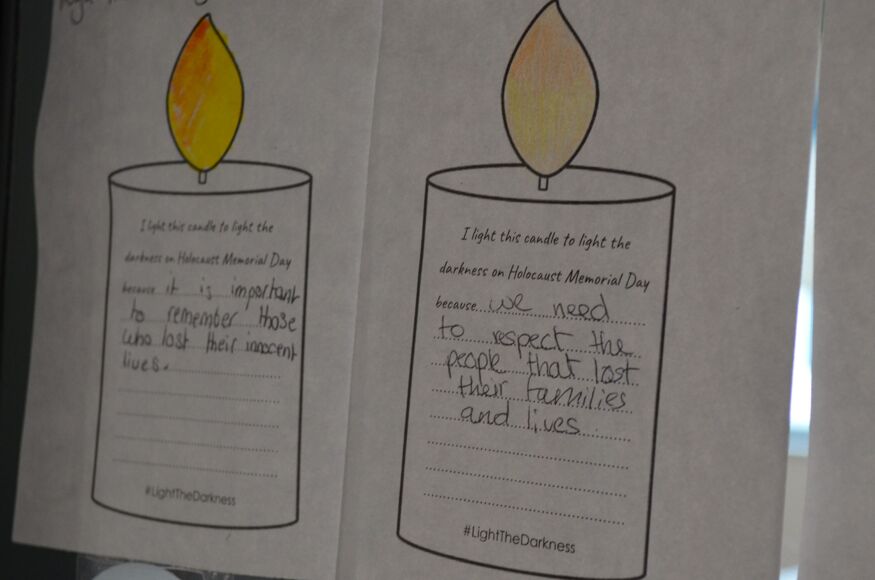 I light this candle to light the
darkness on Holocaust Memorial Day
because it is important
to remember those
who lost their innocent
lives.
#LightTheDarkness
I light this candle to light the
darkness on Holocaust Memorial Day
because we need
to respect the
people that lost
their families
and lives.
#LightTheDarkness